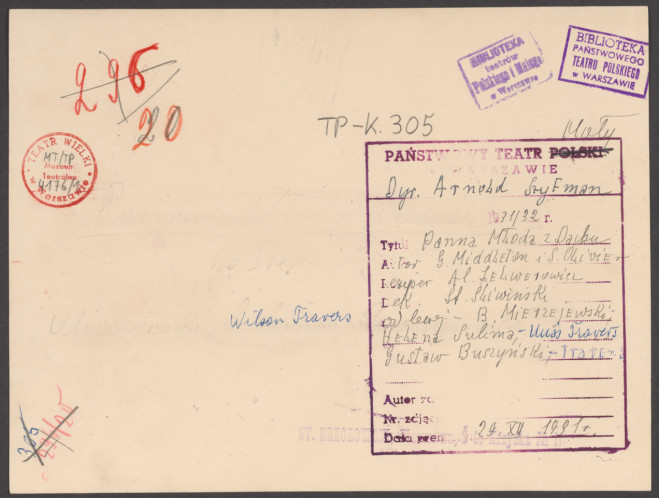 296
20
BIBLIOTEKA
teatrów
Polskiego i Małego
w Warszawie
BIBLIOTEKA
PAŃSTWOWEGO
TEATRU POLSKIEGO
w WARSZAWIE
TP-K. 305
Mały
TEATR WIELKI
MT/TP
Muzeum
Teatralne
w Warszawie
PAŃSTWOWY TEATR POLSKI
WARSZAWIE
Dyr. Arnold Szyfman
1931/32 r.
Tytuł Panna Młoda z Dachu
Autor G. Middleton i S. Olivier
Reżyser Al. Zelwerowicz
Dek. St. Śliwiński
od lewej - B. Mierzejewski,
Wilson Travers
Helena Sulima, - Miss Travers
Gustaw Buszyński, - Travers
Autor zd.
Nr. zdjęc
Data prem. 29. XII 1931 r.
305